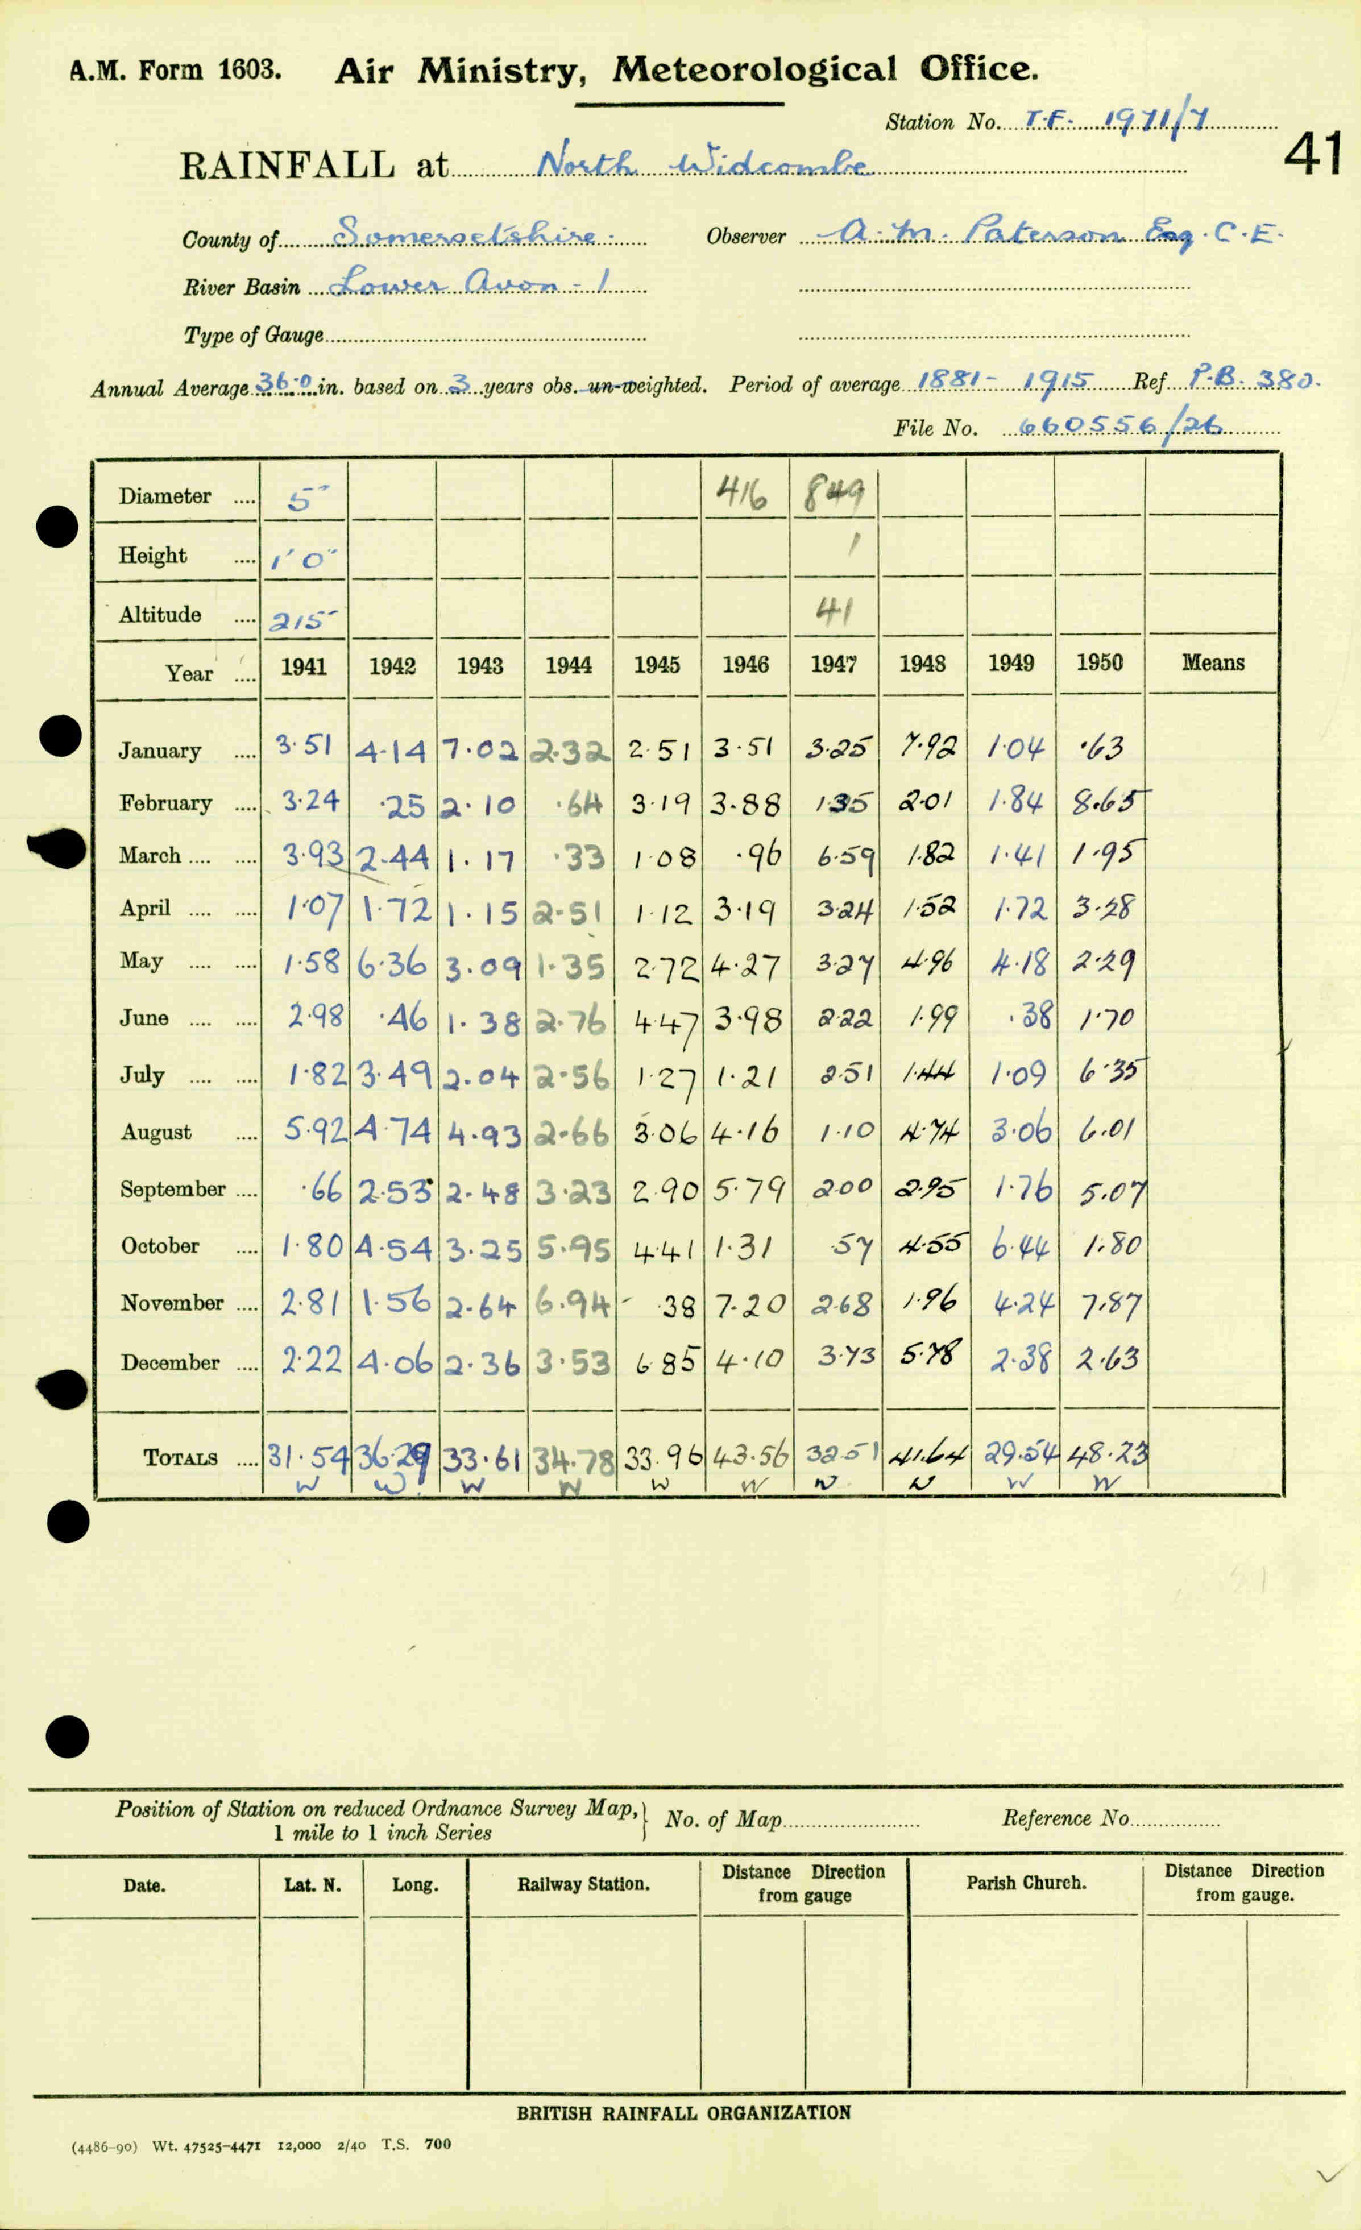 A.M. Form 1603. Air Ministry, Meteorological Office.
Station No. T.F. 1971/7
41
RAINFALL at North Widcombe
County of Somersetshire. Observer A. M. Paterson Esq. C.E.
River Basin Lower Avon - 1
Type of Gauge
Annual Average 36.0 in. based on 3 years obs. un-weighted. Period of average 1881 - 1915 Ref. P.B. 380.
File No. 660556/26
Diameter .... 5" 416 849
Height .... 1' 0" 1
Altitude .... 215 41
Year .... 1941 1942 1943 1944 1945 1946 1947 1948 1949 1950 Means
January .... 3.51 4.14 7.02 2.32 2.51 3.51 3.25 7.92 1.04 .63
February .... 3.24 .25 2.10 .64 3.19 3.88 1.35 2.01 1.84 8.65
March .... .... 3.93 2.44 1.17 .33 1.08 .96 6.59 1.82 1.41 1.95
April .... .... 1.07 1.72 1.15 2.51 1.12 3.19 3.24 1.52 1.72 3.28
May .... .... 1.58 6.36 3.09 1.35 2.72 4.27 3.27 4.96 4.18 2.29
June .... .... 2.98 .46 1.38 2.76 4.47 3.98 2.22 1.99 .38 1.70
July .... .... 1.82 3.49 2.04 2.56 1.27 1.21 2.51 1.44 1.09 6.35
August .... 5.92 4.74 4.93 2.66 3.06 4.16 1.10 4.74 3.06 6.01
September .... .66 2.53 2.48 3.23 2.90 5.79 2.00 2.95 1.76 5.07
October .... 1.80 4.54 3.25 5.95 4.41 1.31 .57 4.55 6.44 1.80
November .... 2.81 1.56 2.64 6.94 .38 7.20 2.68 1.96 4.24 7.87
December .... 2.22 4.06 2.36 3.53 6.85 4.10 3.73 5.78 2.38 2.63
TOTALS .... 31.54 36.29 33.61 34.78 33.96 43.56 32.51 41.64 29.54 48.23
W W W W W W W W W W
Position of Station on reduced Ordnance Survey Map, } No. of Map Reference No.
1 mile to 1 inch Series
Date. Lat. N. Long. Railway Station. Distance Direction from gauge Parish Church. Distance Direction from gauge.
BRITISH RAINFALL ORGANIZATION
(4486-90) Wt. 47525-4471 12,000 2/40 T.S. 700